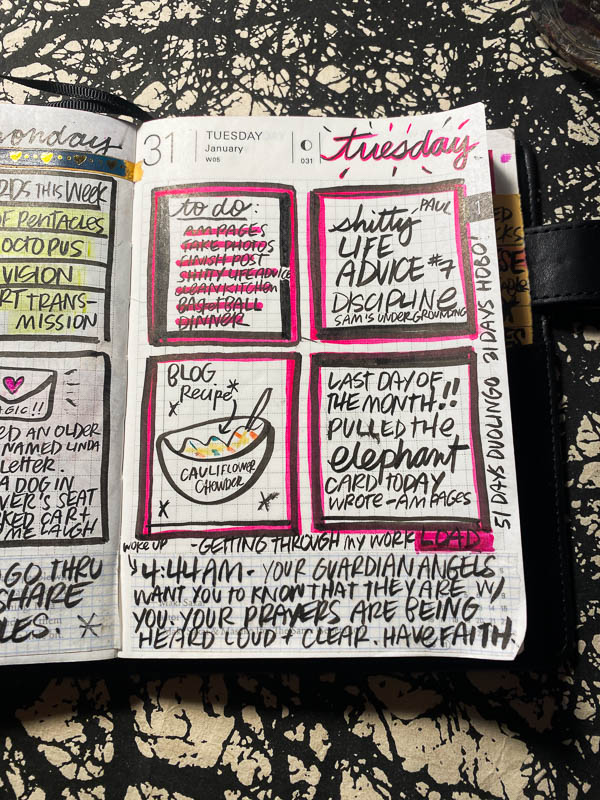 monday
RDS THIS WEEK
OF PENTACLES
OCTOPUS
VISION
RT TRANS-
MISSION
AGIC!!
ED AN OLDER
NAMED LINDA
LETTER.
A DOG IN
VER'S SEAT
RKED CAR +
ME LAUGH
GO THRU
SHARE
LES.
31
TUESDAY
January
W05
031
tuesday
to do:
AM PAGES
TAKE PHOTOS
FINISH POST
SHITTY LIFE ADVICE
CLEAN KITCHEN
BASKETBALL
DINNER
PAUL
shitty
LIFE
ADVICE #7
DISCIPLINE
SAM'S UNDERGROUNDING
1
BLOG
Recipe
CAULIFLOWER
CHOWDER
LAST DAY OF
THE MONTH!!
PULLED THE
elephant
CARD TODAY
WROTE - AM PAGES
51 DAYS DUOLINGO 31 DAYS HOBO!
WOKE UP
- GETTING THROUGH MY WORK LOAD
4:44 AM - YOUR GUARDIAN ANGELS
WANT YOU TO KNOW THAT THEY ARE W/
YOU. YOUR PRAYERS ARE BEING
HEARD LOUD + CLEAR. HAVE FAITH.